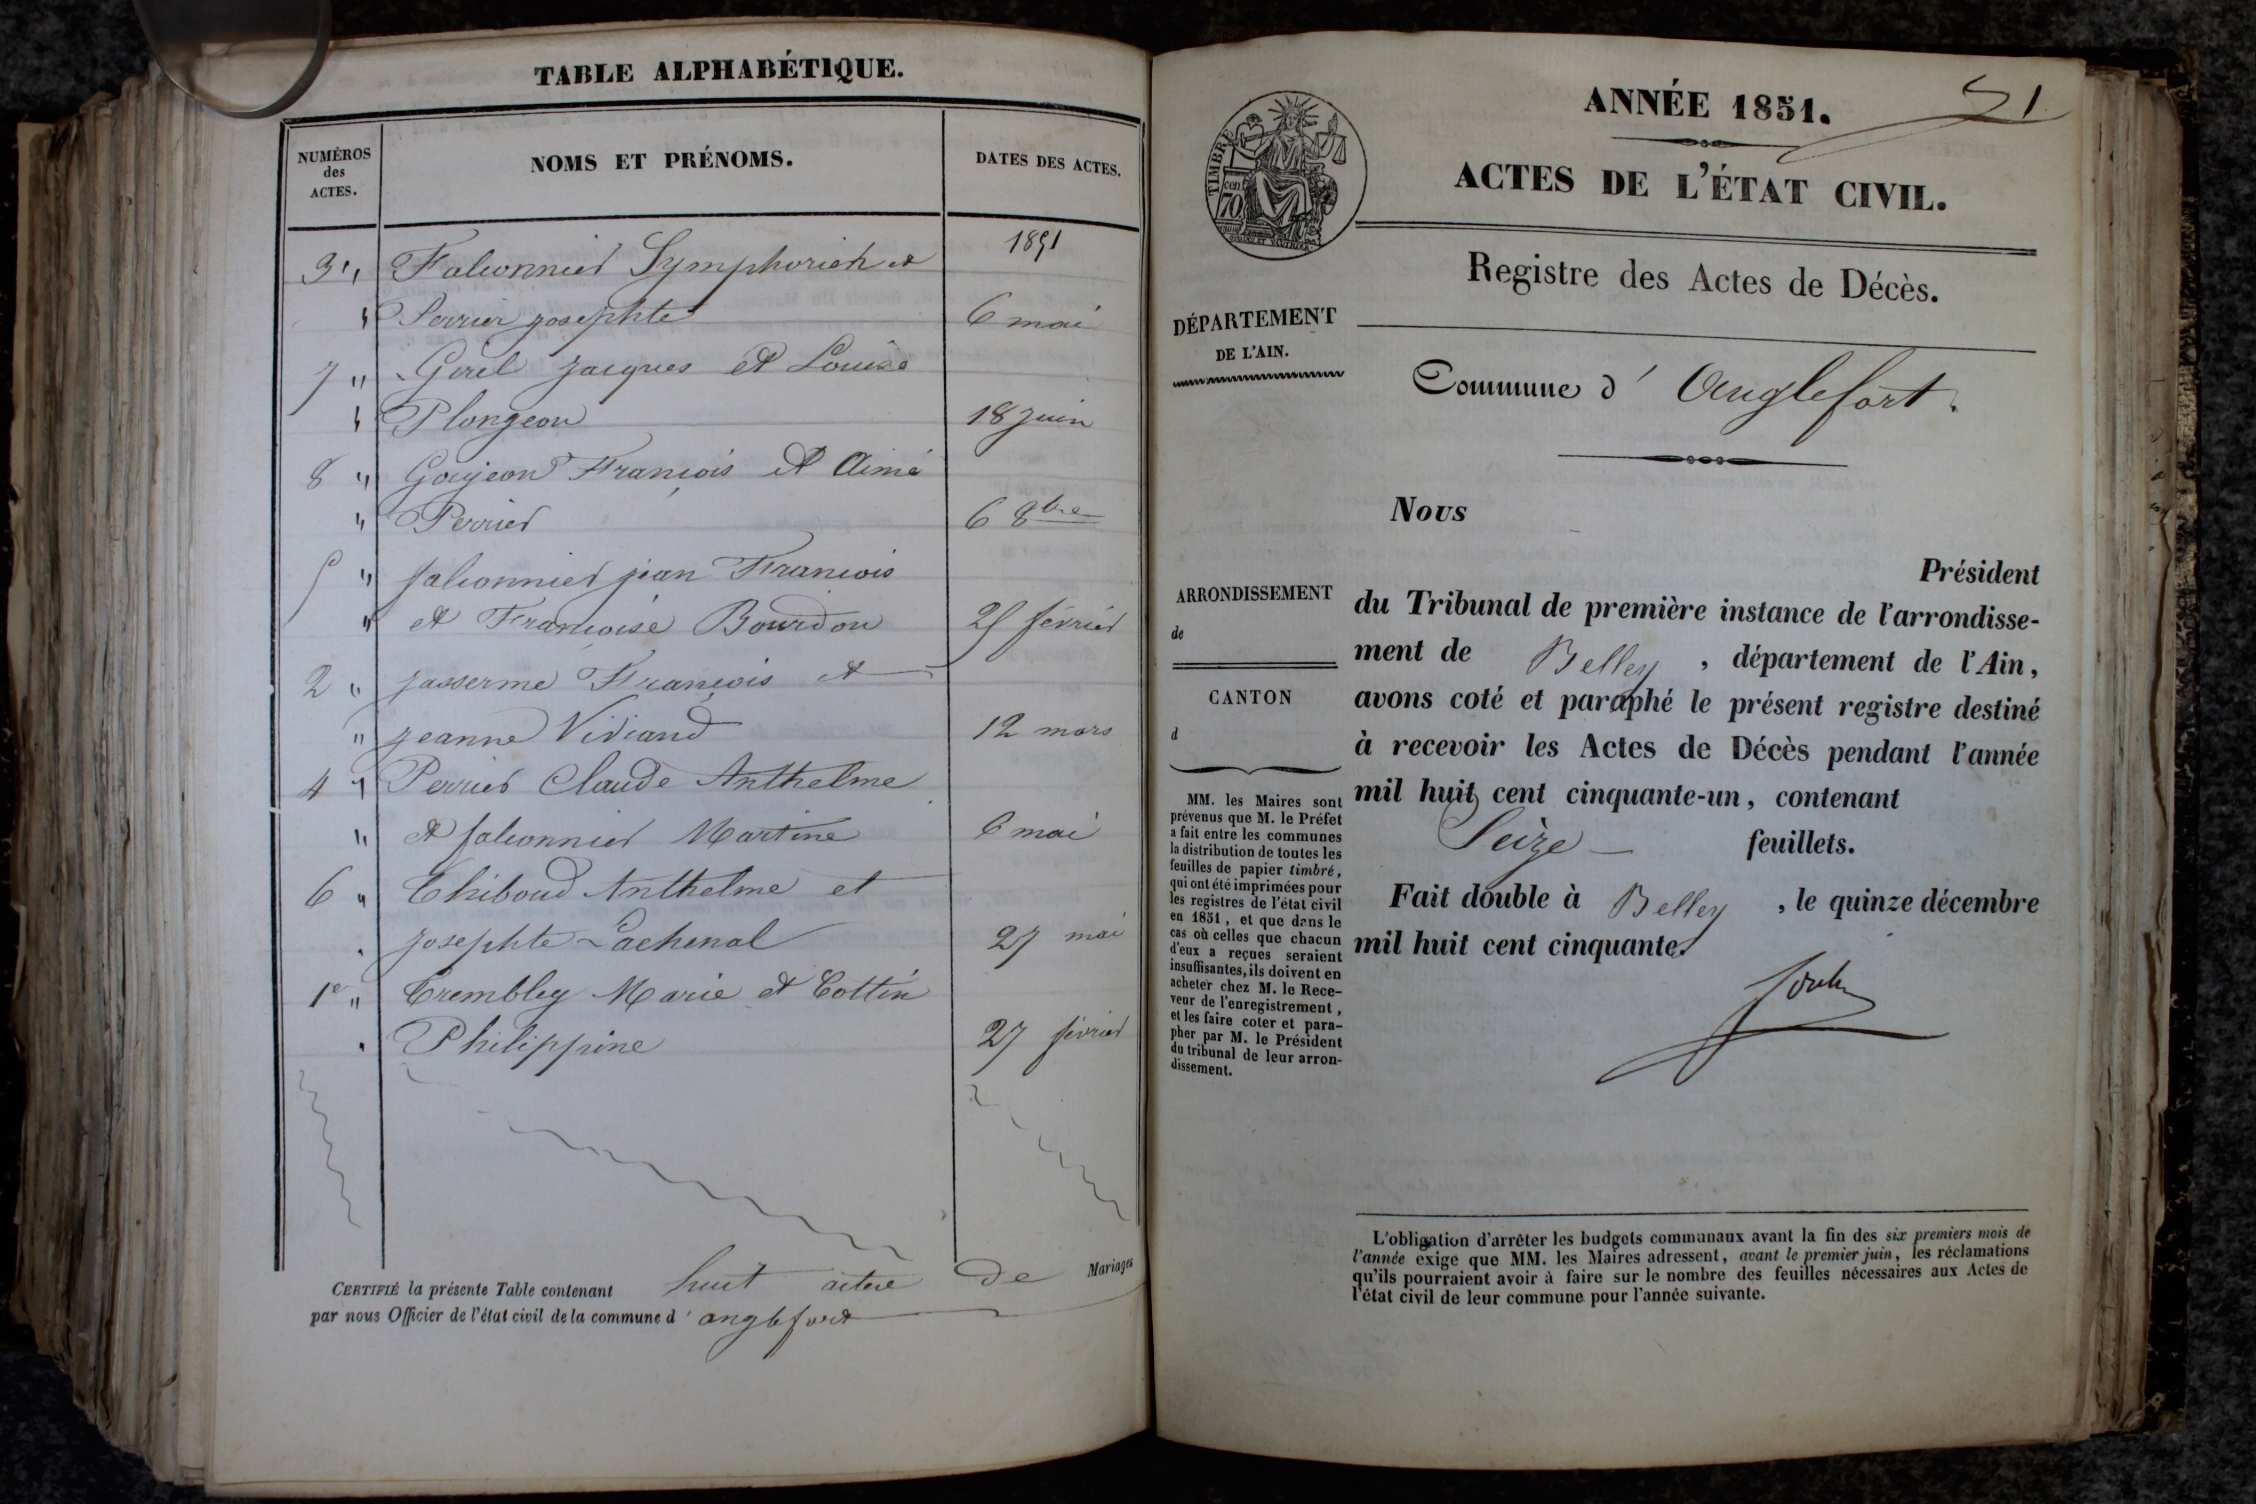 TABLE ALPHABÉTIQUE.
NUMÉROS des ACTES.
NOMS ET PRÉNOMS.
DATES DES ACTES.
1851
3 " Falconnier Symphorien et
" Perrier josephte 6 mai
7 " Girel jacques et Louise
" Plongeon 18 juin
8 " Goujeon François et Aimé
" Perrier 6 8bre
5 " falconnier jean François
" et Françoise Bourdon 25 février
2 " jasserme François et
" jeanne Viviand 12 mars
4 " Perrier Claude Anthelme
" et falconnier Martine 6 mai
6 " Thiboud Anthelme et
josephte Lachenal 27 mai
1er " Trembley Marie et Cottin
Philippine 27 février
CERTIFIÉ la présente Table contenant huit acte de Mariages
par nous Officier de l'état civil de la commune d' anglefort
51
ANNÉE 1851.
ACTES DE L'ÉTAT CIVIL.
TIMBRE
cen
70
Registre des Actes de Décès.
DÉPARTEMENT
DE L'AIN.
Commune d' Anglefort.
Nous
Président
ARRONDISSEMENT
de
CANTON
d
du Tribunal de première instance de l'arrondisse-
ment de Belley , département de l'Ain,
avons coté et paraphé le présent registre destiné
à recevoir les Actes de Décès pendant l'année
mil huit cent cinquante-un, contenant
Seize feuillets.
Fait double à Belley , le quinze décembre
mil huit cent cinquante.
MM. les Maires sont
prévenus que M. le Préfet
a fait entre les communes
la distribution de toutes les
feuilles de papier timbré,
qui ont été imprimées pour
les registres de l'état civil
en 1851, et que dans le
cas où celles que chacun
d'eux a reçues seraient
insuffisantes, ils doivent en
acheter chez M. le Rece-
veur de l'enregistrement,
et les faire coter et para-
pher par M. le Président
du tribunal de leur arron-
dissement.
L'obligation d'arrêter les budgets communaux avant la fin des six premiers mois de
l'année exige que MM. les Maires adressent, avant le premier juin, les réclamations
qu'ils pourraient avoir à faire sur le nombre des feuilles nécessaires aux Actes de
l'état civil de leur commune pour l'année suivante.